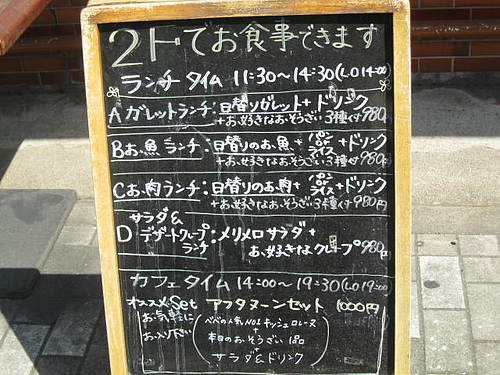 2Fでお食事できます
ランチタイム 11:30〜14:30(L.O 14:00)
Aガレットランチ:日替りガレット+ドリンク
+お好きなおそうざい3種付980円
Bお魚ランチ:日替りのお魚+パンorライス+ドリンク
+お好きなおそうざい3種付980円
Cお肉ランチ:日替りのお肉+パンorライス+ドリンク
+お好きなおそうざい3種付980円
サラダ&
D デザートクレープ:メリメロサラダ+
ランチ お好きなクレープ980円
カフェタイム 14:00〜19:30(L.O 19:00)
オススメSet アフタヌーンセット 1000円
お気軽に
お入り下さい
べべの人気No1キッシュロレーヌ
+
本日のおそうざい
サラダ&ドリンク